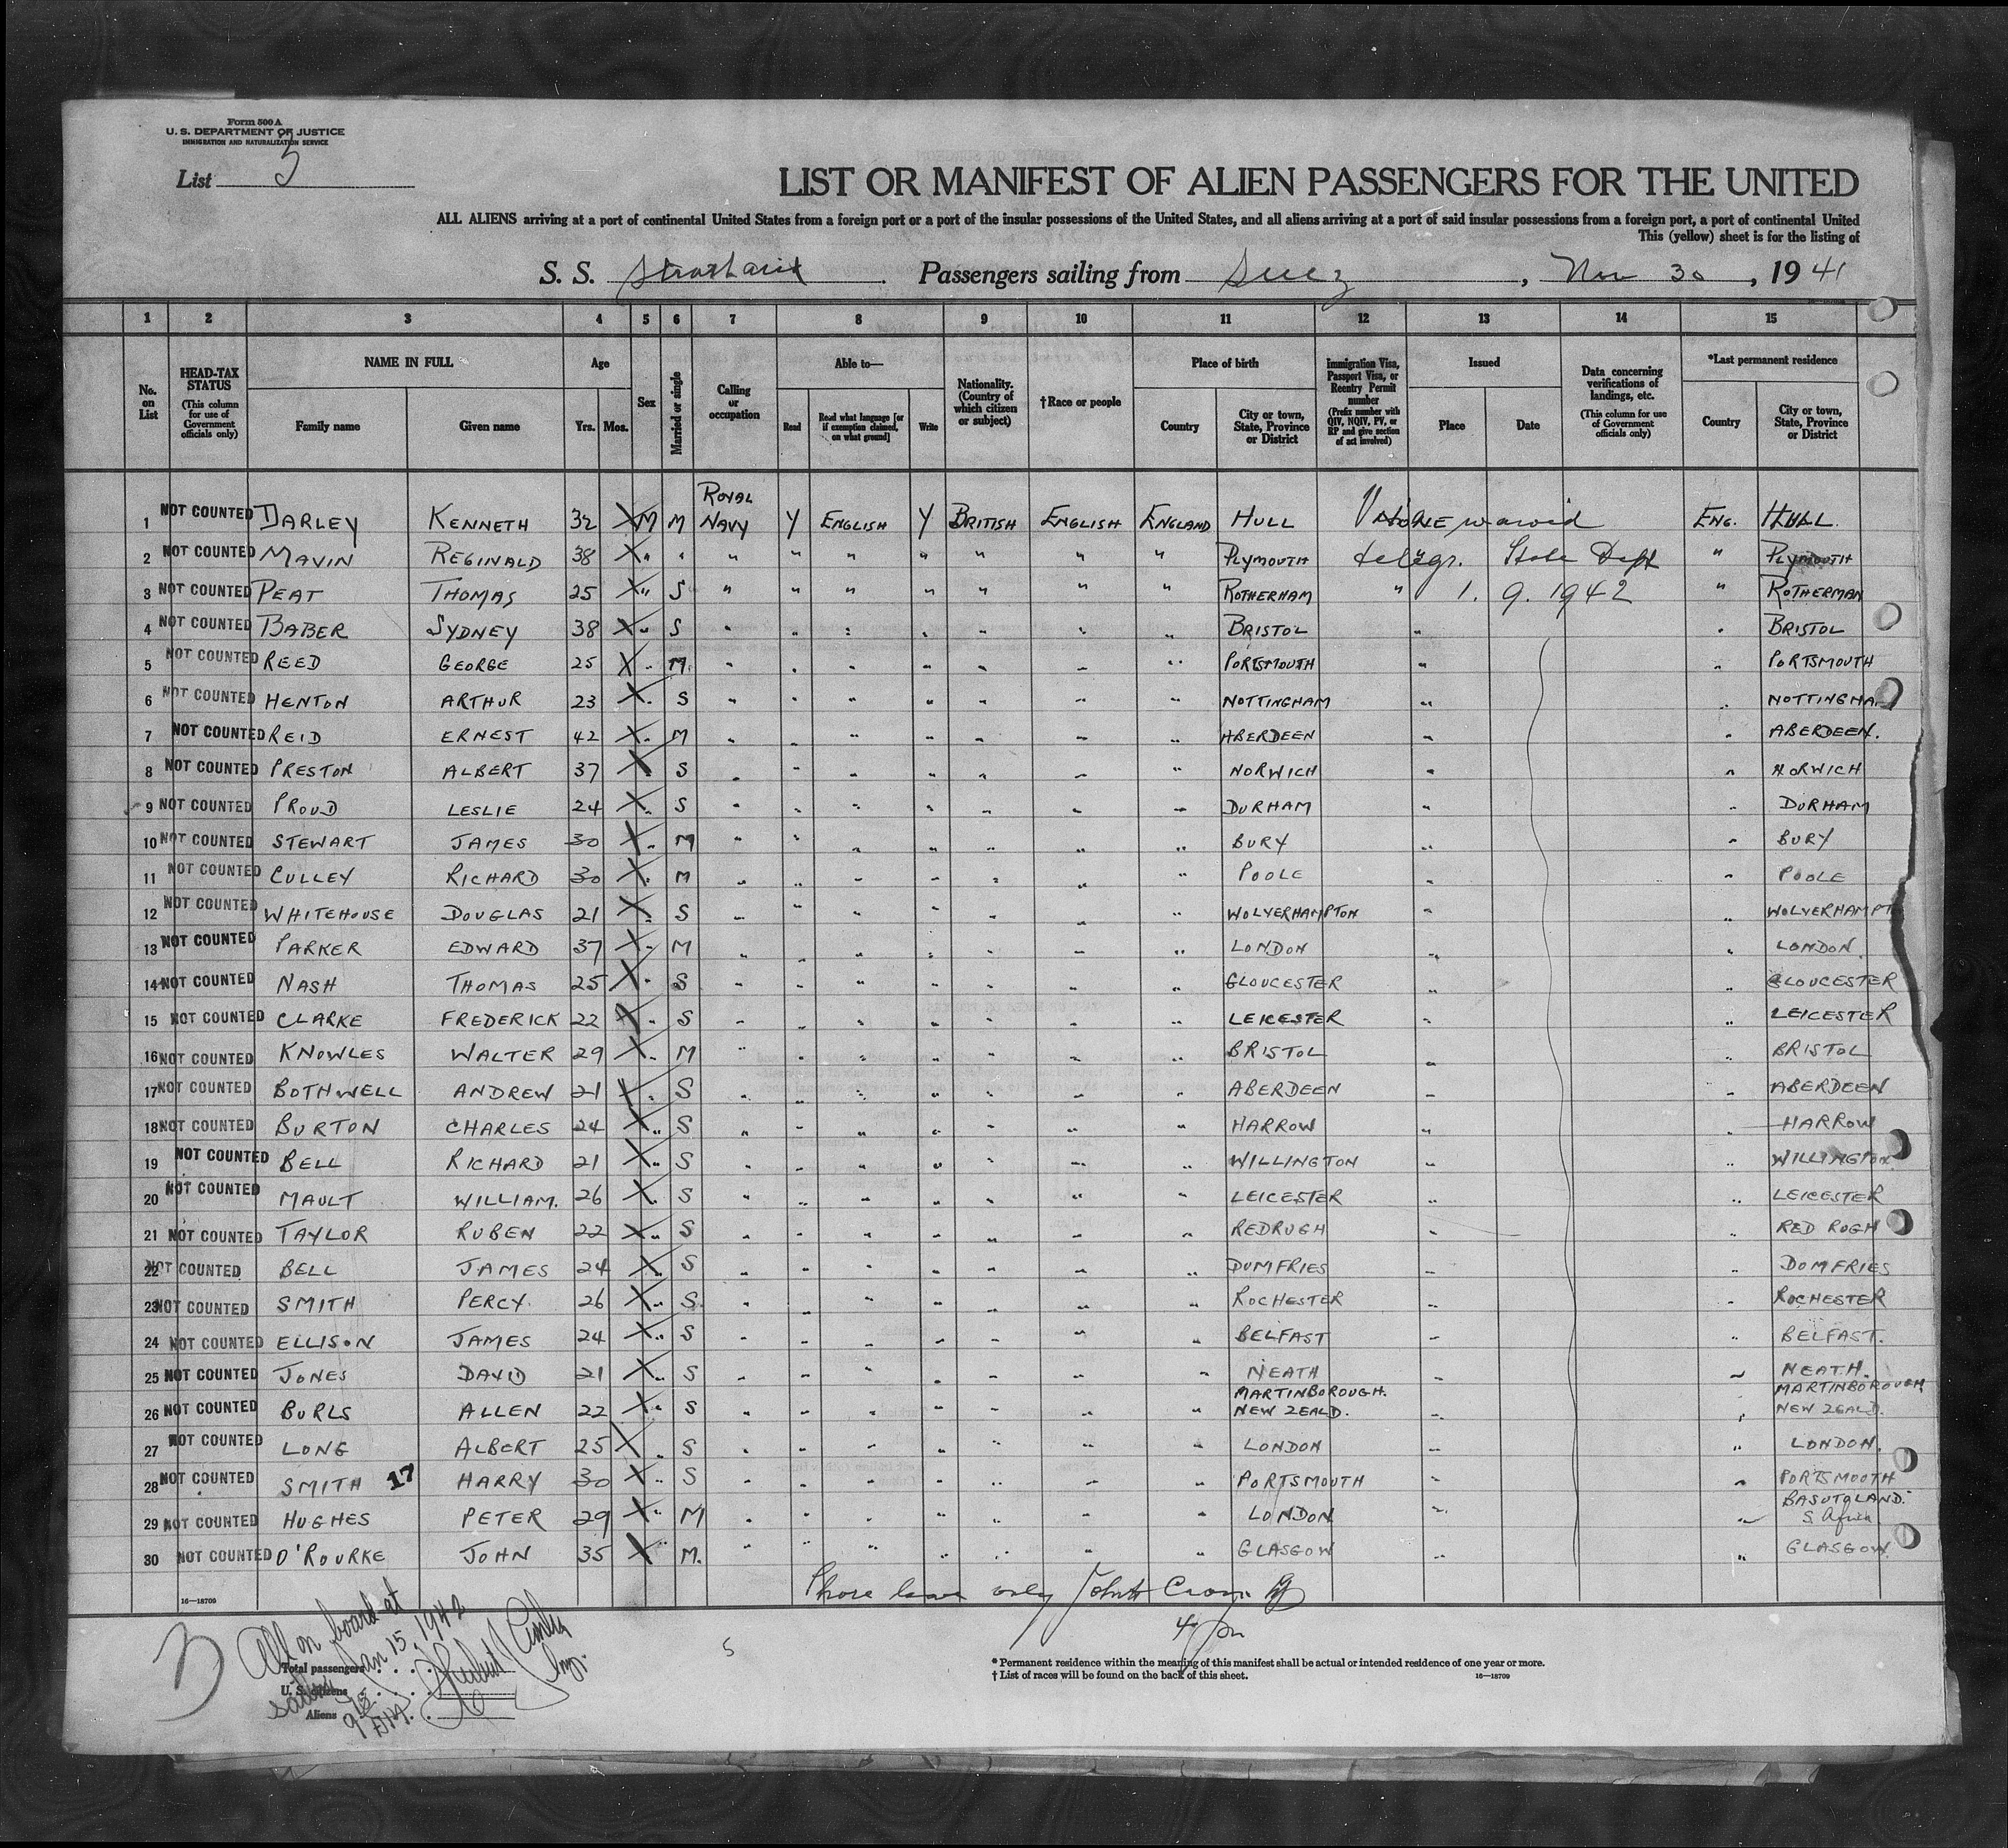 Form 500 A
U. S. DEPARTMENT OF JUSTICE
IMMIGRATION AND NATURALIZATION SERVICE
List 3
LIST OR MANIFEST OF ALIEN PASSENGERS FOR THE UNITED
ALL ALIENS arriving at a port of continental United States from a foreign port or a port of the insular possessions of the United States, and all aliens arriving at a port of said insular possessions from a foreign port, a port of continental United
This (yellow) sheet is for the listing of
S. S. Passengers sailing from Suez, Nov 30, 1941
1 2 3 4 5 6 7 8 9 10 11 12 13 14 15
No. on List
HEAD-TAX STATUS (This column for use of Government officials only)
NAME IN FULL Family name Given name
Age Yrs. Mos.
Sex
Married or single
Calling or occupation
Able to— Read Read what language [or if exemption claimed, on what ground] Write
Nationality. (Country of which citizen or subject)
†Race or people
Place of birth Country City or town, State, Province or District
Immigration Visa, Passport Visa, or Reentry Permit number (Prefix number with QIV, NQIV, PV, or RP and give section of act involved)
Issued Place Date
Data concerning verifications of landings, etc. (This column for use of Government officials only)
*Last permanent residence Country City or town, State, Province or District
1 NOT COUNTED DARLEY KENNETH 32 X M M ROYAL NAVY Y ENGLISH Y BRITISH ENGLISH ENGLAND HULL ENG. HULL
2 NOT COUNTED MAVIN REGINALD 38 X " " " " " " " " " PLYMOUTH telegr. State Dept " PLYMOUTH
3 NOT COUNTED PEAT THOMAS 25 X " S " " " " " " " ROTHERHAM " 1. 9. 1942 " ROTHERMAN
4 NOT COUNTED BABER SYDNEY 38 X " S " " " " " " " BRISTOL " " BRISTOL
5 NOT COUNTED REED GEORGE 25 X " M. " " " " " " " PORTSMOUTH " " PORTSMOUTH
6 NOT COUNTED HENTON ARTHUR 23 X " S " " " " " " " NOTTINGHAM " " NOTTINGHA
7 NOT COUNTED REID ERNEST 42 X " M " " " " " " " ABERDEEN " " ABERDEEN.
8 NOT COUNTED PRESTON ALBERT 37 X " S " " " " " " " NORWICH " " NORWICH
9 NOT COUNTED PROUD LESLIE 24 X " S " " " " " " " DURHAM " " DURHAM
10 NOT COUNTED STEWART JAMES 30 X " M " " " " " " " BURY " " BURY
11 NOT COUNTED CULLEY RICHARD 30 X " M " " " " " " " POOLE " " POOLE
12 NOT COUNTED WHITEHOUSE DOUGLAS 21 X " S " " " " " " " WOLVERHAMPTON " " WOLVERHAMPT
13 NOT COUNTED PARKER EDWARD 37 X " M " " " " " " " LONDON " " LONDON
14 NOT COUNTED NASH THOMAS 25 X " S " " " " " " " GLOUCESTER " " GLOUCESTER
15 NOT COUNTED CLARKE FREDERICK 22 X " S " " " " " " " LEICESTER " " LEICESTER
16 NOT COUNTED KNOWLES WALTER 29 X " M " " " " " " " BRISTOL " " BRISTOL
17 NOT COUNTED BOTHWELL ANDREW 21 X " S " " " " " " " ABERDEEN " " ABERDEEN
18 NOT COUNTED BURTON CHARLES 24 X " S " " " " " " " HARROW " " HARROW
19 NOT COUNTED BELL RICHARD 21 X " S " " " " " " " WILLINGTON " " WILLINGTON
20 NOT COUNTED MAULT WILLIAM. 26 X " S " " " " " " " LEICESTER " " LEICESTER
21 NOT COUNTED TAYLOR RUBEN 22 X " S " " " " " " " REDRUGH " " RED RUGH
22 NOT COUNTED BELL JAMES 24 X " S " " " " " " " DUMFRIES " " DOMFRIES
23 NOT COUNTED SMITH PERCY 26 X " S. " " " " " " " ROCHESTER " " ROCHESTER
24 NOT COUNTED ELLISON JAMES 24 X " S " " " " " " " BELFAST " " BELFAST.
25 NOT COUNTED JONES DAVID 21 X " S " " " " " " " NEATH " " NEATH.
26 NOT COUNTED BURLS ALLEN 22 X " S " " " " " " " MARTINBOROUGH. NEW ZEALD. " " MARTINBOROUGH NEW ZEALD.
27 NOT COUNTED LONG ALBERT 25 X " S " " " " " " " LONDON " " LONDON.
28 NOT COUNTED SMITH 17 HARRY 30 X " S " " " " " " " PORTSMOUTH " " PORTSMOOTH
29 NOT COUNTED HUGHES PETER 29 X " M " " " " " " " LONDON " " BASUTOLAND. S. Africa
30 NOT COUNTED O'ROURKE JOHN 35 X " M. " " " " " " " GLASGOW " " GLASGOW
16—18709
Shore leave only
4 pm
3
All on board at
sailing Jan 15, 1942
5
Total passengers
U. S. citizens
Aliens
* Permanent residence within the meaning of this manifest shall be actual or intended residence of one year or more.
† List of races will be found on the back of this sheet.
16—18709